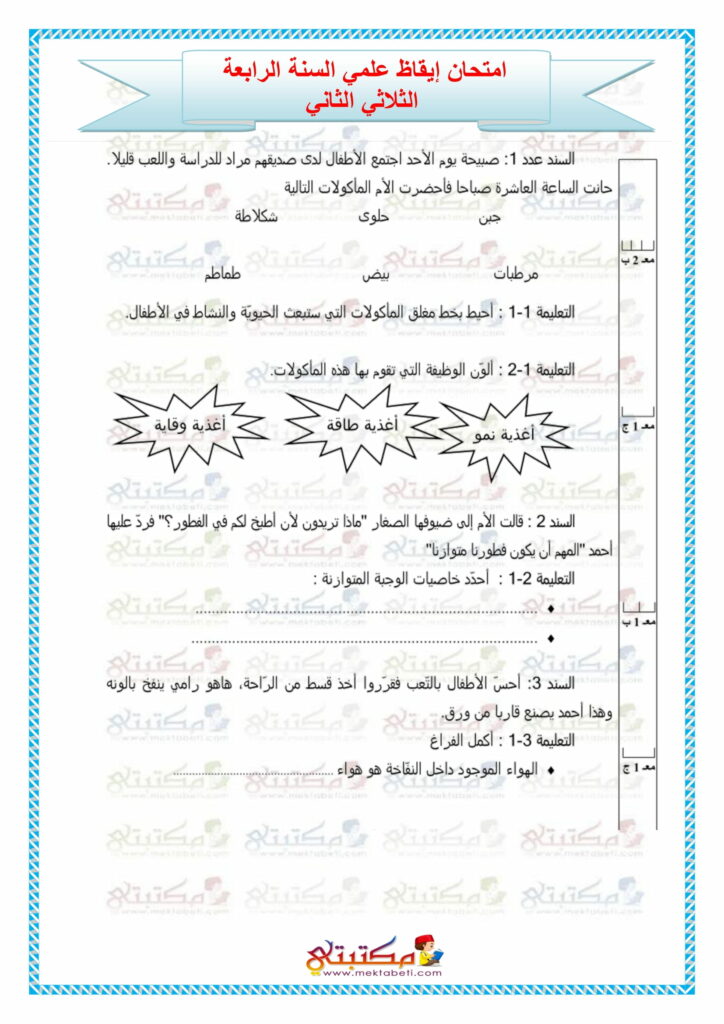 امتحان إيقاظ علمي السنة الرابعة
الثلاثي الثاني
السند عدد 1: صبيحة يوم الأحد اجتمع الأطفال لدى صديقهم مراد للدراسة واللعب قليلا.
حانت الساعة العاشرة صباحا فأحضرت الأم المأكولات التالية
جبن حلوى شكلاطة
مرطبات بيض طماطم
معـ 2 ب
التعليمة 1-1 : أحيط بخط مغلق المأكولات التي ستبعث الحيويّة والنشاط في الأطفال.
التعليمة 1-2 : ألوّن الوظيفة التي تقوم بها هذه المأكولات.
أغذية نمو أغذية طاقة أغذية وقاية
معـ 1 ج
السند 2 : قالت الأم إلى ضيوفها الصغار "ماذا تريدون لأن أطبخ لكم في الفطور؟" فردّ عليها
أحمد "المهم أن يكون فطورنا متوازنا"
التعليمة 2-1 : أحدّد خاصيات الوجبة المتوازنة :
♦ ................................................
♦ ................................................
معـ 1 ب
السند 3: أحسّ الأطفال بالتّعب فقرّروا أخذ قسط من الرّاحة، هاهو رامي ينفخ بالونه
وهذا أحمد يصنع قاربا من ورق.
التعليمة 3-1 : أكمل الفراغ
♦ الهواء الموجود داخل النفّاخة هو هواء ................................
معـ 1 ج
مكتبتي
www.mektabeti.com